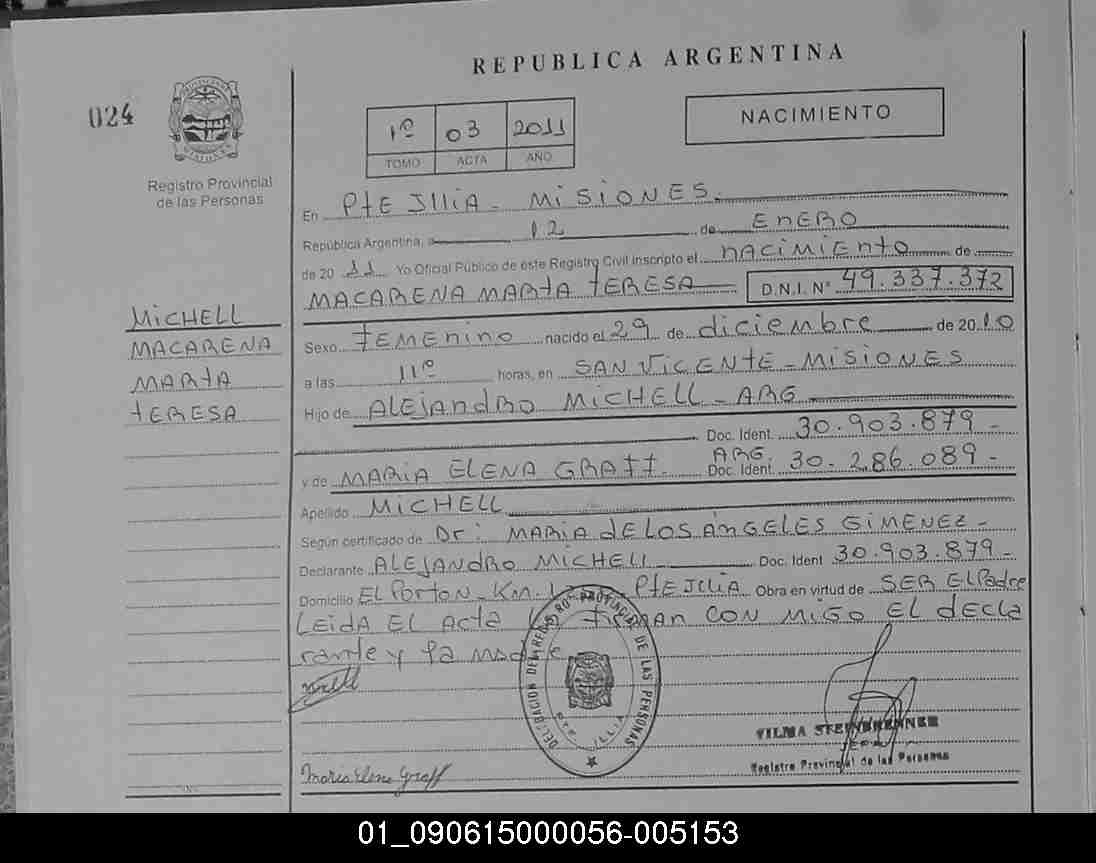 REPUBLICA ARGENTINA
024
Registro Provincial
de las Personas
1º 03 2011
TOMO ACTA AÑO
NACIMIENTO
En PtE JlliA - MiSiONES.
República Argentina, a 12 de EnERO
de 20 11 Yo Oficial Público de este Registro Civil inscripto el nACiMiEnto de
MACARENA MARtA tERESA D.N.I. Nº 49.337.372
MiCHELL
MACARENA
MARtA
tERESA
Sexo FEMEnino nacido el 29 de diciembre de 2010
a las 11º horas, en SAN ViCENtE - MiSiONES
Hijo de ALEJANDRO MiCHELL - ARG
Doc. Ident. 30.903.879 -
y de MARiA ELENA GRAFF. ARG. Doc. Ident. 30.286.089 -
Apellido MiCHELL
Según certificado de Dr: MARiA dE LOS ÁNGELES GiMENEZ -
Declarante ALEJANDRO MiCHEll Doc. Ident 30.903.879 -
Domicilio EL PORTON - KM. PtE JLLiA Obra en virtud de SER El Padre
LEidA EL ActA FiRMAN CON MiGO EL dEClA
rante y la madre
DELEGACION DEL REGISTRO PROVINCIAL DE LAS PERSONAS
PTE. ILLIA
VILMA STEINBRENNER
Registro Provincial de las Personas
Maria Elena Graff
01_090615000056-005153